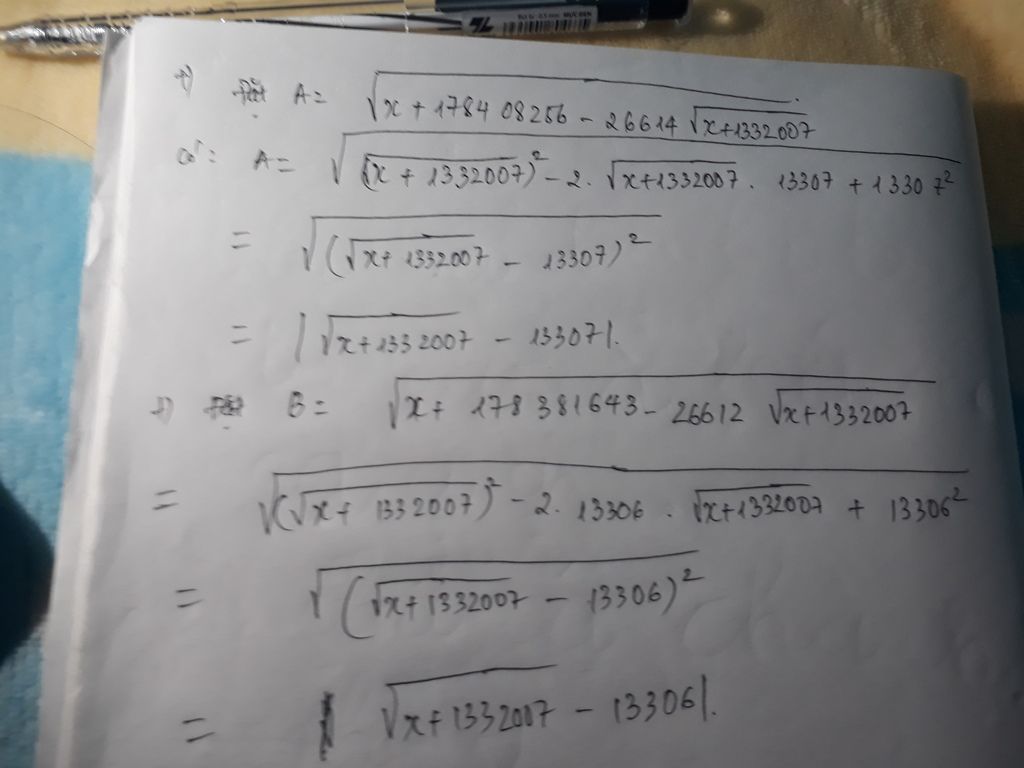 +) Đặt A = √(x + 178408256 - 26614 √(x+1332007))
Có: A = √((√(x + 1332007))² - 2. √(x+1332007) . 13307 + 13307²)
= √((√(x+1332007) - 13307)²)
= |√(x+1332007) - 13307|.
+) Đặt B = √(x + 178381643 - 26612 √(x+1332007))
= √((√(x + 1332007))² - 2. 13306 . √(x+1332007) + 13306²)
= √((√(x+1332007) - 13306)²)
= |√(x+1332007) - 13306|.